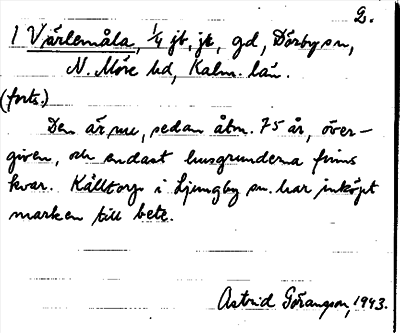 2.
1 Värlemåla, 1/4 jb, jk, gd, Dörby sn,
N. Möre hd, Kalm. län.
(forts.)
Den är nu, sedan åtm. 75 år, över-
given, och endast husgrunderna finns
kvar. Källtorp i Ljungby sn. har inköpt
marken till bete.
Astrid Göransson, 1943.